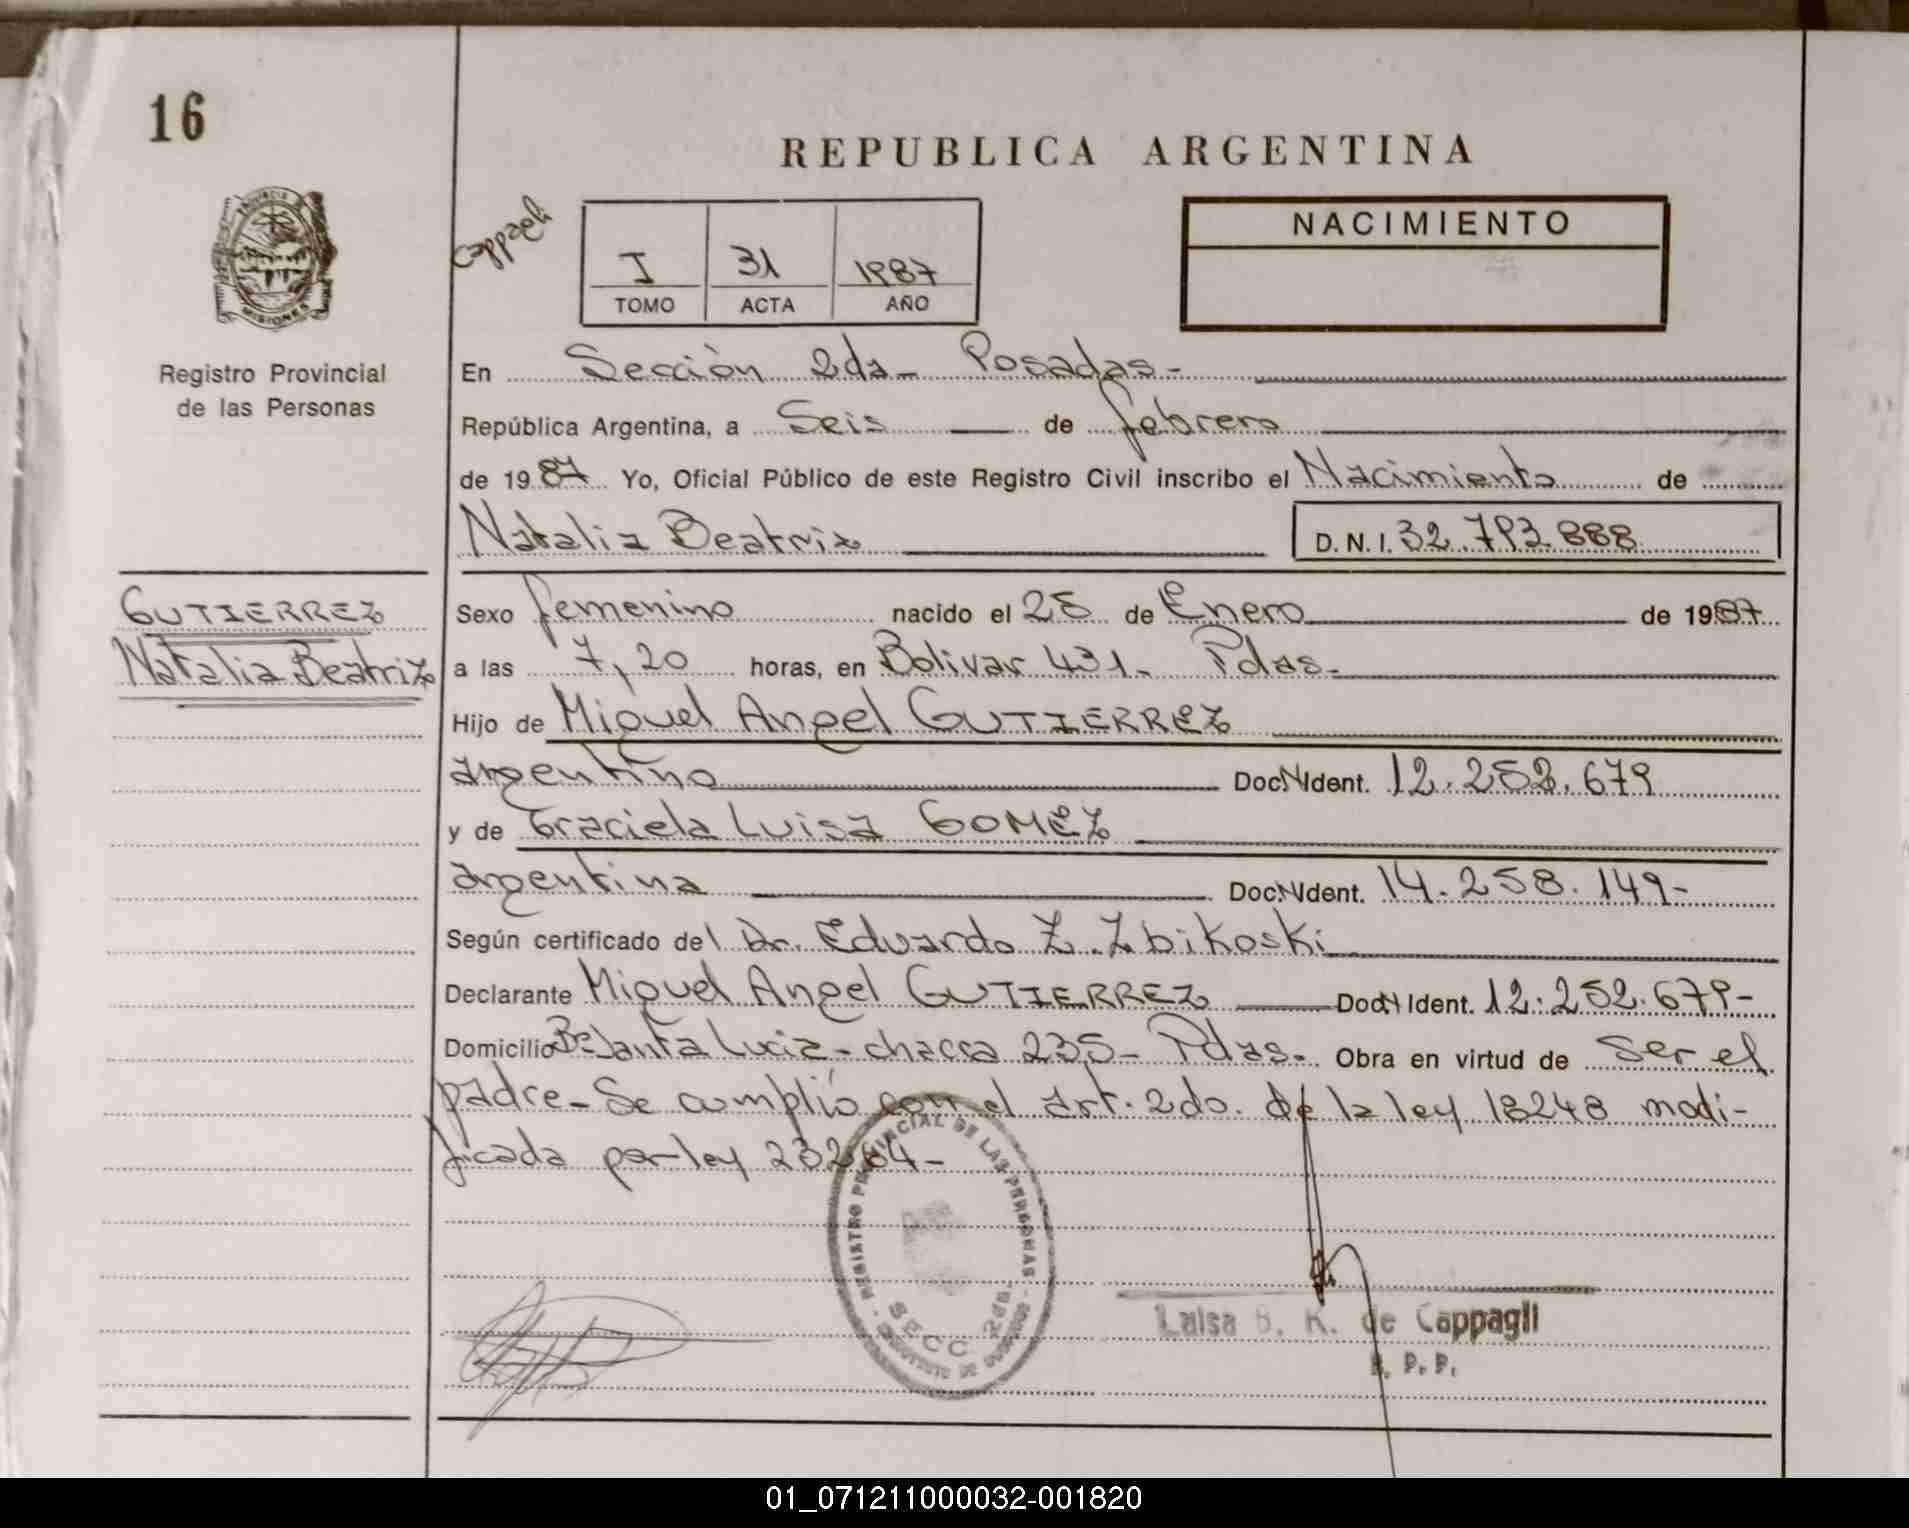 16
REPUBLICA ARGENTINA
Cappagli
I 31 1987
TOMO ACTA AÑO
NACIMIENTO
MISIONES
Registro Provincial
de las Personas
En Sección 2da- Posadas-
República Argentina, a Seis de febrero
de 1987 Yo, Oficial Público de este Registro Civil inscribo el Nacimiento de
Natalia Beatriz D.N.I. 32.793.888
GUTIERREZ
Natalia Beatriz
Sexo femenino nacido el 28 de Enero de 1987
a las 7,20 horas, en Bolivar 431- Pdas-
Hijo de Miguel Angel GUTIERREZ
argentino Doc.N.Ident. 12.252.679
y de Graciela Luisa GOMEZ
argentina Doc.N.Ident. 14.258.149-
Según certificado del Dr. Eduardo Z. Zbikoski
Declarante Miguel Angel GUTIERREZ Doc.N Ident. 12.252.679-
Domicilio Bº Santa Lucia- chacra 235- Pdas- Obra en virtud de ser el
padre- Se cumplió con el art. 2do. de la ley 18248 modi-
ficada por ley 23264-
REGISTRO PROVINCIAL DE LAS PERSONAS
SECC. 2da
Luisa B. K. de Cappagli
P.P.
01_071211000032-001820